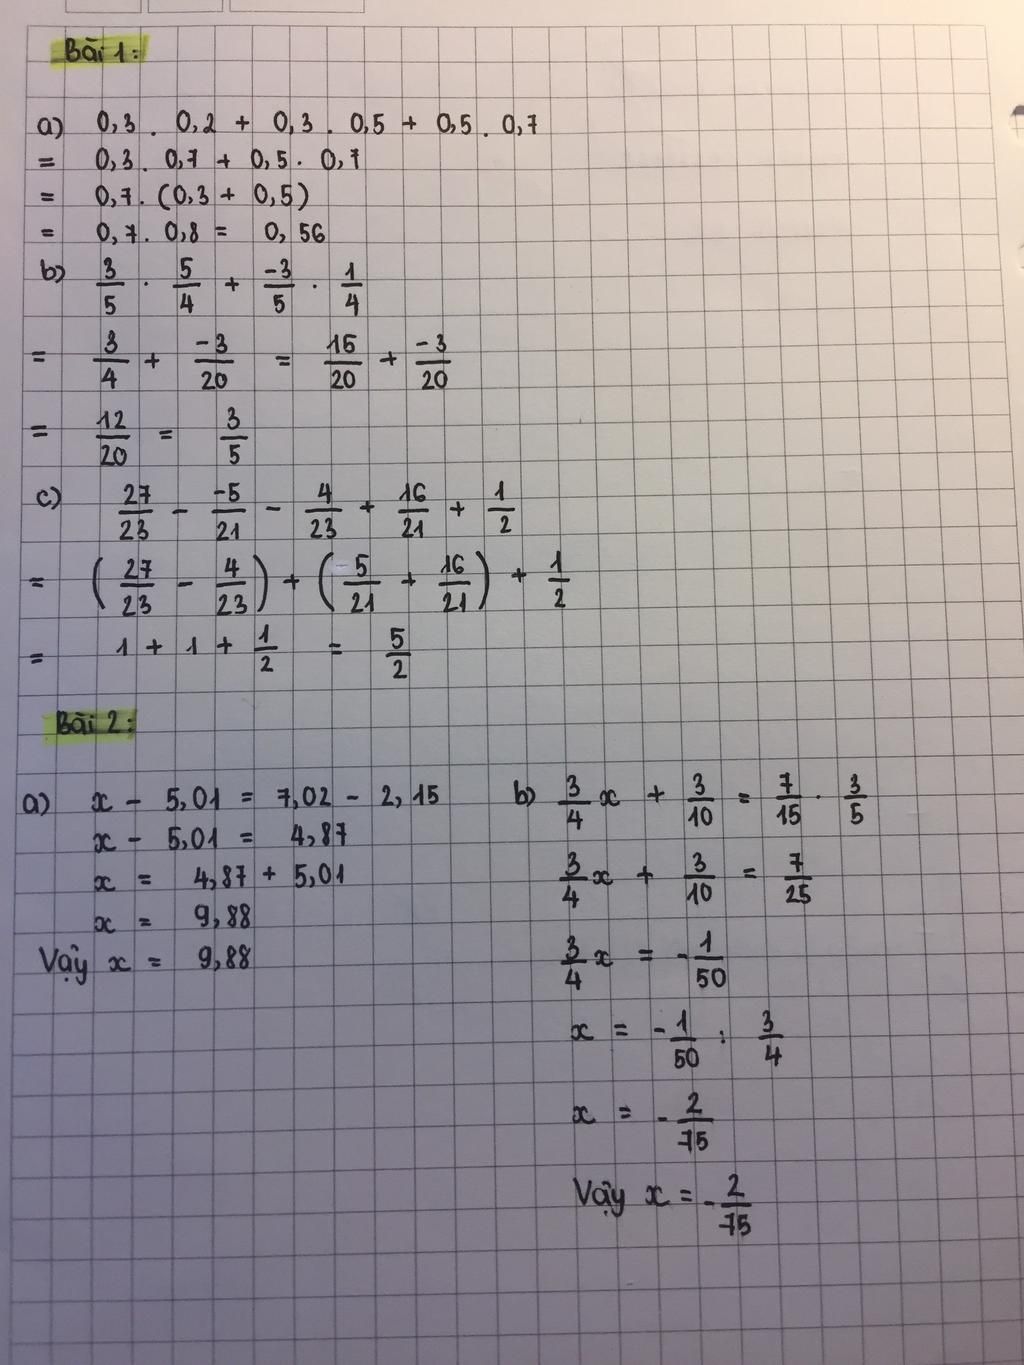 Bài 1:
a) 0,3 . 0,2 + 0,3 . 0,5 + 0,5 . 0,7
= 0,3 . 0,7 + 0,5 . 0,7
= 0,7 . (0,3 + 0,5)
= 0,7 . 0,8 = 0,56
b) 3/5 . 5/4 + -3/5 . 1/4
= 3/4 + -3/20 = 15/20 + -3/20
= 12/20 = 3/5
c) 27/23 - -5/21 - 4/23 + 16/21 + 1/2
= (27/23 - 4/23) + (5/21 + 16/21) + 1/2
= 1 + 1 + 1/2 = 5/2
Bài 2:
a) x - 5,01 = 7,02 - 2,15
x - 5,01 = 4,87
x = 4,87 + 5,01
x = 9,88
Vậy x = 9,88
b) 3/4 x + 3/10 = 7/15 . 3/5
3/4 x + 3/10 = 7/25
3/4 x = -1/50
x = -1/50 : 3/4
x = -2/75
Vậy x = -2/75